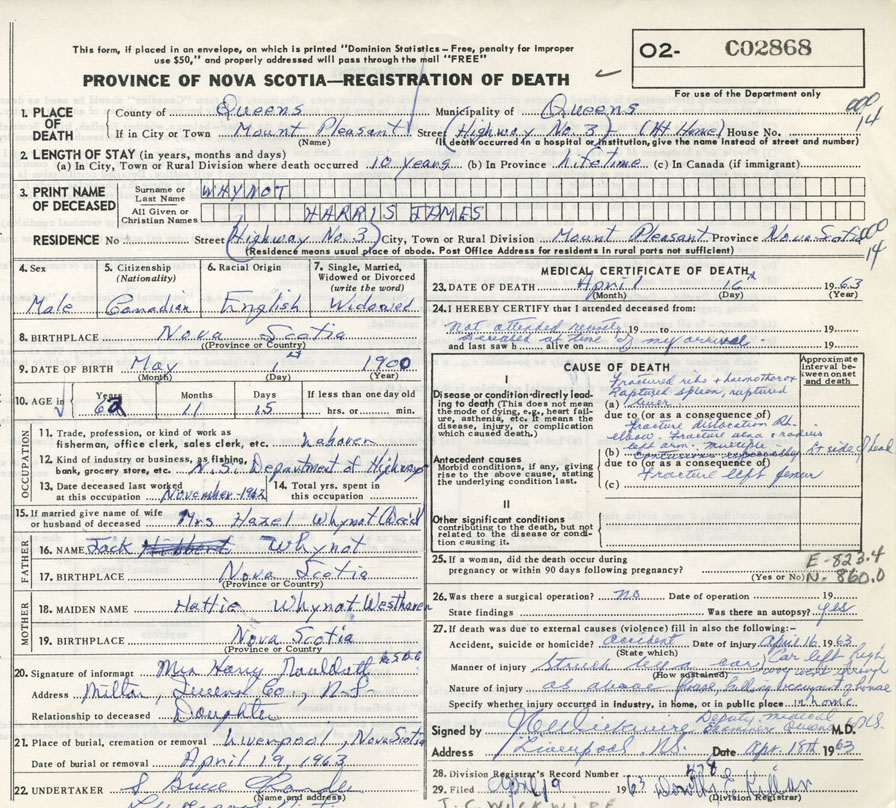 This form, if placed in an envelope, on which is printed "Dominion Statistics – Free, penalty for improper
use $50," and properly addressed will pass through the mail "FREE"
O2- C02868
PROVINCE OF NOVA SCOTIA—REGISTRATION OF DEATH
For use of the Department only
1. PLACE OF DEATH County of Queens Municipality of Queens
If in City or Town Mount Pleasant Street (Highway No. 3) (At Home) House No.
(Name) (If death occurred in a hospital or institution, give the name instead of street and number)
000
14
2. LENGTH OF STAY (in years, months and days)
(a) In City, Town or Rural Division where death occurred 10 years (b) In Province lifetime (c) In Canada (if immigrant)
3. PRINT NAME OF DECEASED Surname or Last Name WHYNOT
All Given or Christian Names HARRIS JAMES
RESIDENCE No Street (Highway No. 3) City, Town or Rural Division Mount Pleasant Province Nova Scotia
(Residence means usual place of abode. Post Office Address for residents in rural parts not sufficient)
000
14
4. Sex 5. Citizenship (Nationality) 6. Racial Origin 7. Single, Married, Widowed or Divorced (write the word)
Male Canadian English Widowed
8. BIRTHPLACE Nova Scotia
(Province or Country)
9. DATE OF BIRTH May 1st 1900
(Month) (Day) (Year)
10. AGE in Years Months Days If less than one day
62 11 15 hrs. or min.
OCCUPATION
11. Trade, profession or kind of work as
fisherman, office clerk, sales clerk, etc. Laborer
12. Kind of industry or business, as fishing,
bank, grocery store, etc. N.S. Department of Highways
13. Date deceased last worked at this occupation November 1962 14. Total yrs. spent in this occupation
15. If married give name of wife
or husband of deceased Mrs Hazel Whynot Dec'd
FATHER
16. NAME Jack Whynot
17. BIRTHPLACE Nova Scotia
(Province or Country)
MOTHER
18. MAIDEN NAME Hattie Whynot Westhaver
19. BIRTHPLACE Nova Scotia
(Province or Country)
20. Signature of informant Mrs Harry
Address Milton, Queens Co., N.S.
Relationship to deceased Daughter
21. Place of burial, cremation or removal Liverpool, Nova Scotia
Date of burial or removal April 19, 1963
22. UNDERTAKER S Bruce
(Name and address)
MEDICAL CERTIFICATE OF DEATH
23. DATE OF DEATH April 16th 1963
(Month) (Day) (Year)
24. I HEREBY CERTIFY that I attended deceased from:
not attended 19 to 19
and last saw h alive on 19
Deceased at time of my arrival.
CAUSE OF DEATH
Approximate interval between onset and death
I
Disease or condition directly leading to death (This does not mean the mode of dying, e.g., heart failure, asthenia, etc. It means the disease, injury, or complication which caused death.)
Fractured ribs + haemothorax
Ruptured spleen, ruptured
(a) liver
due to (or as a consequence of)
Fracture dislocation Rt.
elbow. Fracture ulna + radius
Antecedent causes
Morbid conditions, if any, giving rise to the above cause, stating the underlying condition last.
(b) left arm. multiple
side of head
due to (or as a consequence of)
(c) Fracture left femur
II
Other significant conditions
contributing to the death, but not related to the disease or condition causing it.
25. If a woman, did the death occur during
pregnancy or within 90 days following pregnancy?
(Yes or No)
E-823.4
N-860.0
26. Was there a surgical operation? no Date of operation 19
State findings Was there an autopsy? yes
27. If death was due to external causes (violence) fill in also the following:-
Accident, suicide or homicide? accident Date of injury April 16 1963
(State which)
Manner of injury Struck by a car) (Car left high
(How sustained) way went through
Nature of injury as above house, killing occupant of house
Specify whether injury occurred in industry, in home, or in public place in home
Signed by J C Wickwire Deputy medical Examiner Queens Co. N.S. M.D.
Address Liverpool N.S. Date Apr. 18th 1963
28. Division Registrar's Record Number 478
29. Filed April 19 1963
(Division Registrar)
J. C. WICKWIRE